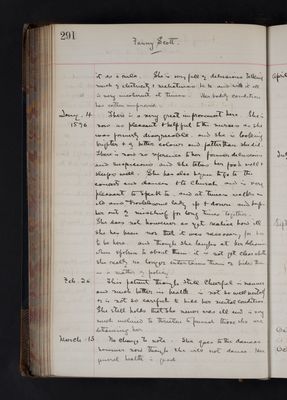 291
Fanny Scott.
it is a rule. She is very full of delusions talking
much of electricity & mediations to her and with it all
is very incoherent at times. Her bodily condition
has rather improved.
Jany. 4 There is a very great improvement here. She is
1896 now as pleasant & helpful to the nurses as she
was formerly disagreeable and she is looking
brighter & of better colour and fatter than she did.
There is now no reference to her former delusions
and suspicions and she takes her food well &
sleeps well. She has also begun to go to the
concerts and dances & to Church and is very
pleasant to speak to and at times
its once troublesome lady up & down and keeps
her out of mischief for long times together.
She does not however as yet realise how ill
she has been nor that it was necessary for her
to be here and though she laughs at her delusions
when spoken to about them it is not yet clear that
she really no longer entertains them or hides them
as a matter of policy.
Feb. 20 This patient though still cheerful in manner
and much better in health is not so well mentally
& is not so careful to hide her mental condition
She still holds that she never was ill and is very
much inclined to threaten to punish those who are
detaining her.
March 15 No change to note. She goes to the dances
however now though she does not dance. Her
general health is good